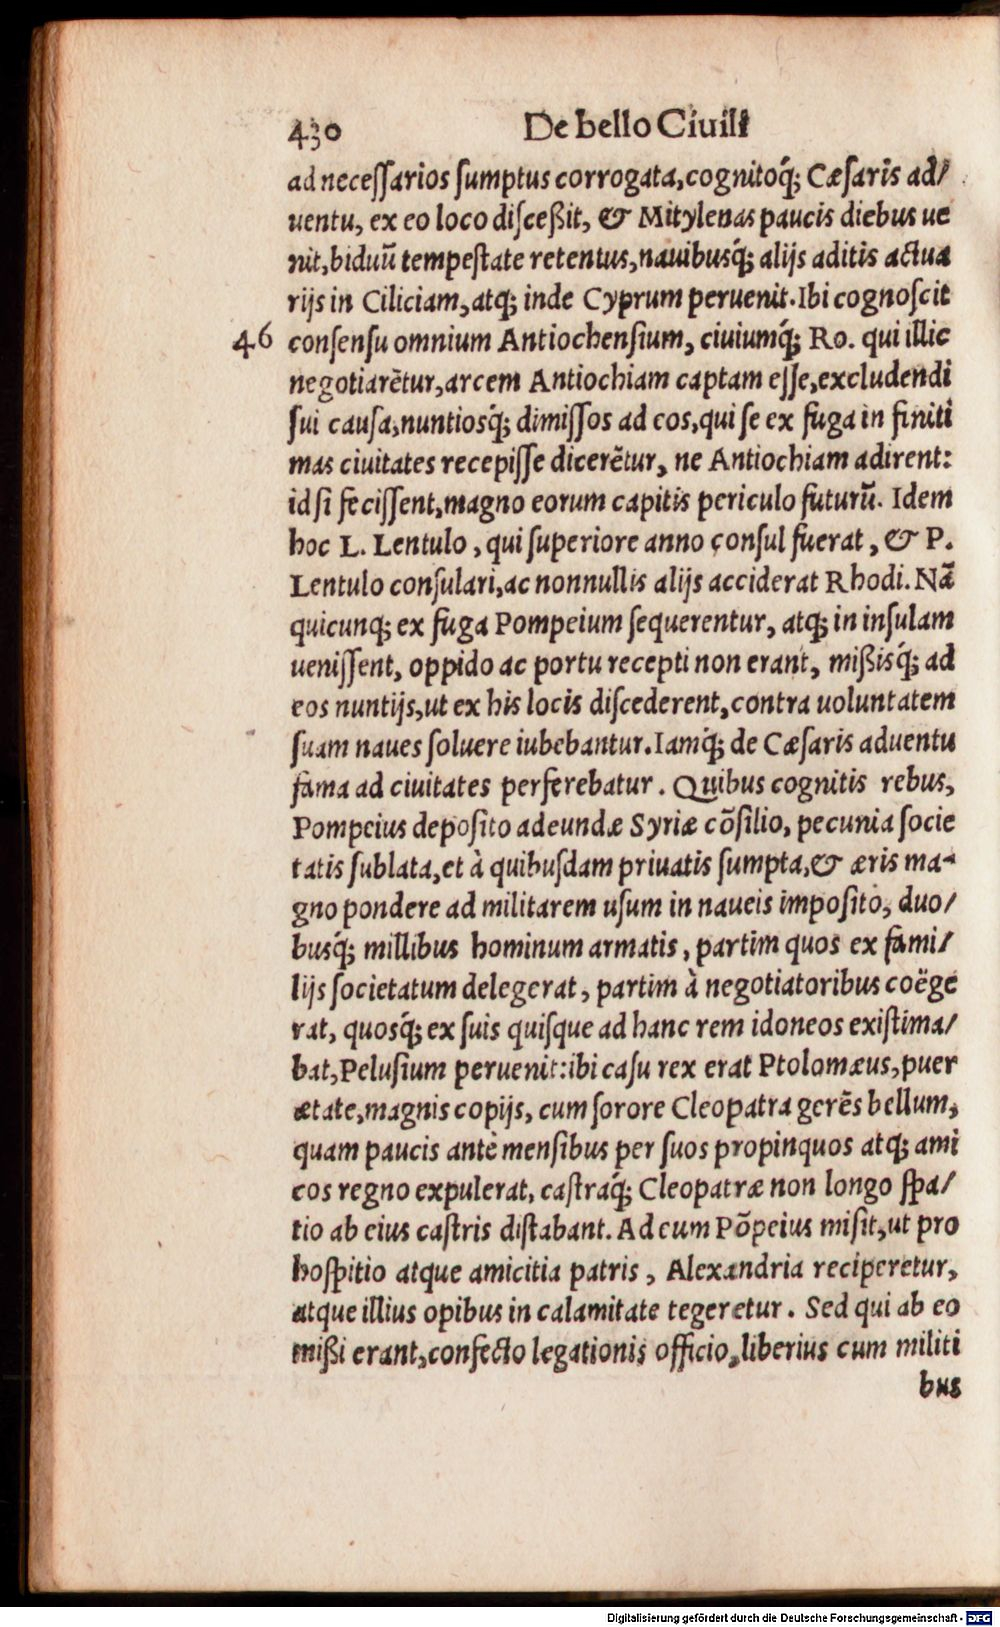 430 De bello Ciuili
ad neceſſarios ſumptus corrogata, cognitoq́; Cæſaris ad/
uentu, ex eo loco diſceßit, & Mitylenas paucis diebus ue
nit, biduũ tempeſtate retentus, nauibusq́; alijs aditis actua
rijs in Ciliciam, atq; inde Cyprum peruenit. Ibi cognoſcit
46 conſenſu omnium Antiochenſium, ciuiumq́; Ro. qui illic
negotiarẽtur, arcem Antiochiam captam eſſe, excludendi
ſui cauſa, nuntiosq́; dimiſſos ad eos, qui ſe ex fuga in finiti
mas ciuitates recepiſſe dicerẽtur, ne Antiochiam adirent:
id ſi feciſſent, magno eorum capitis periculo futurũ. Idem
hoc L. Lentulo, qui ſuperiore anno conſul fuerat, & P.
Lentulo conſulari, ac nonnullis alijs acciderat Rhodi. Nã
quicunq; ex fuga Pompeium ſequerentur, atq; in inſulam
ueniſſent, oppido ac portu recepti non erant, mißisq́; ad
eos nuntijs, ut ex his locis diſcederent, contra uoluntatem
ſuam naues ſoluere iubebantur. Iamq́; de Cæſaris aduentu
fama ad ciuitates perferebatur. Quibus cognitis rebus,
Pompeius depoſito adeundæ Syriæ cõſilio, pecunia ſocie
tatis ſublata, et à quibuſdam priuatis ſumpta, & æris ma-
gno pondere ad militarem uſum in naueis impoſito, duo/
busq́; millibus hominum armatis, partim quos ex fami/
lijs ſocietatum delegerat, partim à negotiatoribus coëge
rat, quosq́; ex ſuis quiſque ad hanc rem idoneos exiſtima/
bat, Peluſium peruenit: ibi caſu rex erat Ptolomæus, puer
ætate, magnis copijs, cum ſorore Cleopatra gerẽs bellum,
quam paucis antè menſibus per ſuos propinquos atq; ami
cos regno expulerat, caſtraq́; Cleopatræ non longo ſpa/
tio ab eius caſtris diſtabant. Ad eum Põpeius miſit, ut pro
hoſpitio atque amicitia patris, Alexandria reciperetur,
atque illius opibus in calamitate tegeretur. Sed qui ab eo
mißi erant, confecto legationis officio, liberius cum militi
bus
Digitalisierung gefördert durch die Deutsche Forschungsgemeinschaft - DFG